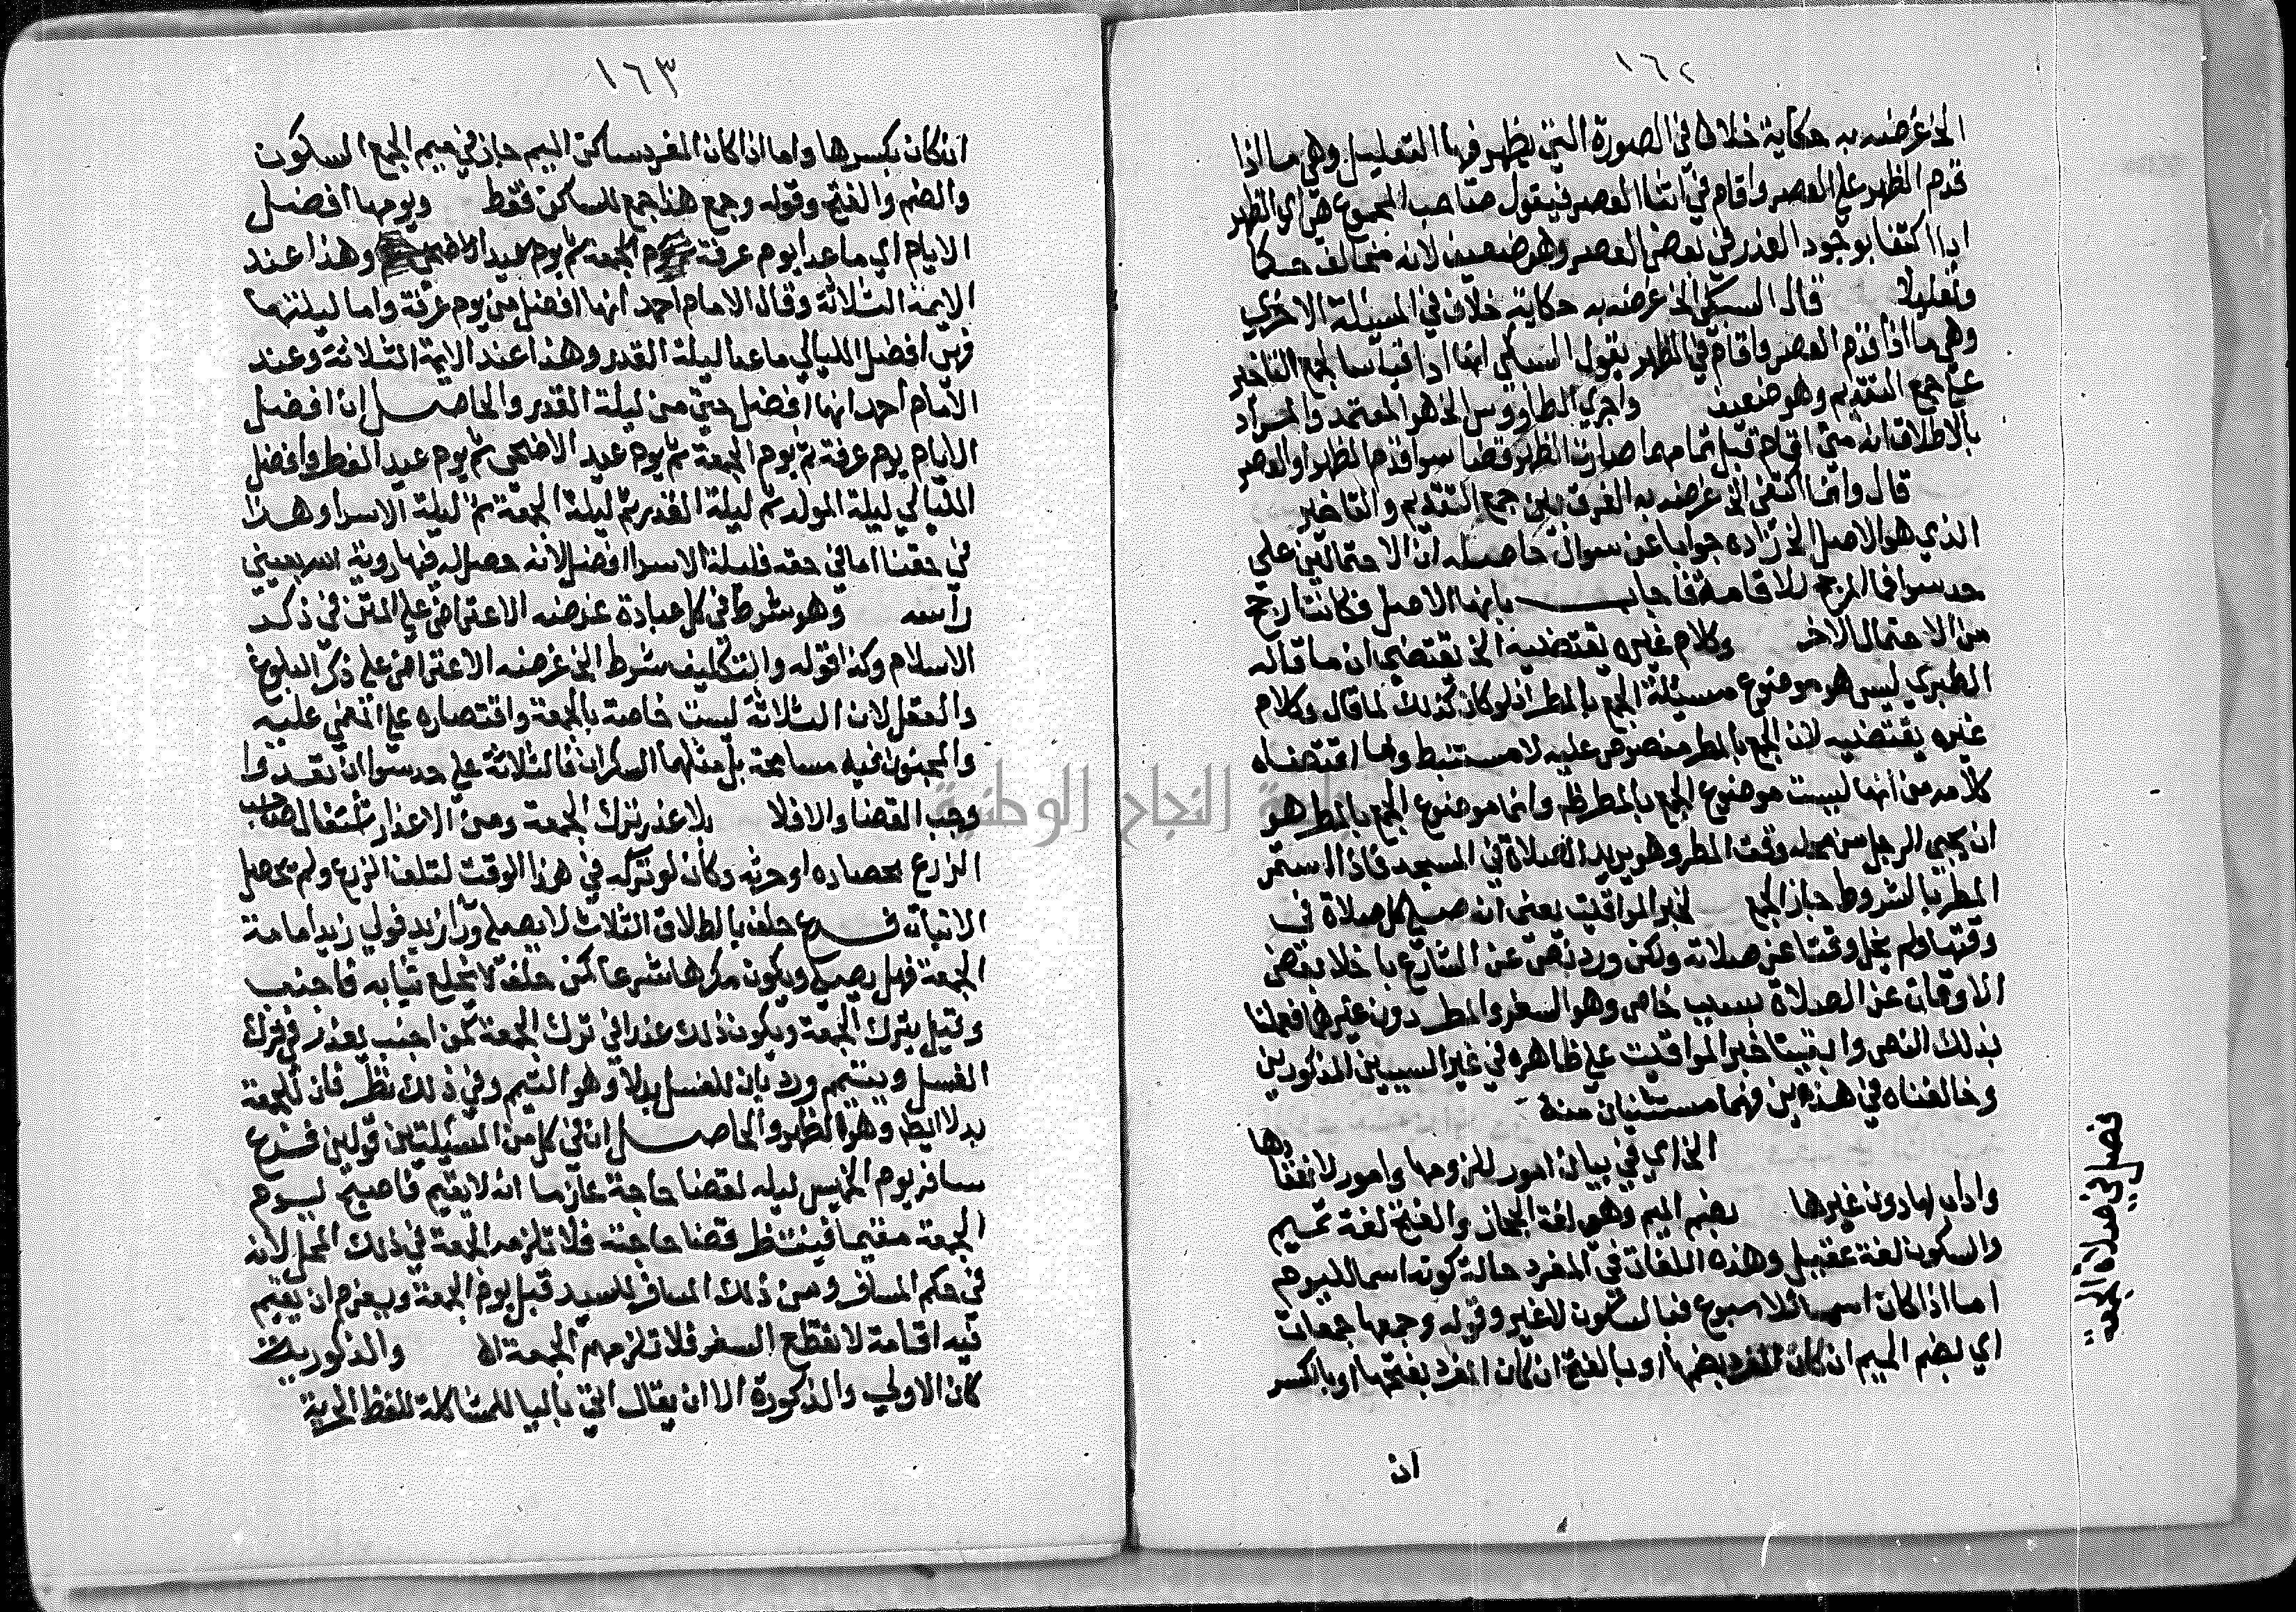 ١٦٢
الخ غرضه به حكاية خلاف في الصورة التي يظهر فيها التعليل وهي ما اذا
قدم الظهر على العصر واقام في اثنا العصر فيقول صاحب المجموع هي اي الظهر
ادا اكتفا بوجود العذر في بعض العصر وهو ضعيف لانه مخالف حكما
وتعليلا قال السبكي الخ غرضه به حكاية خلاف في المسئلة الاخري
وهي ما اذا قدم العصر واقام في الظهر يقول السبكي انها ادا قياسا لجمع التاخير
على جمع التقديم وهو ضعيف واجري الطاووسي الخ هو المعتمد والمراد
بالاطلاق انه متى اقام قبل تمامهما صارت الظهر قضا سوا قدم الظهر او العصر
قال وانما اكتفى الخ غرضه به الفرق بين جمع التقديم والتاخير
الذي هو الاصل الخ زاده جوابا عن سوال حاصله ان الاحتمالين على
حد سوا فما المرجح للاقامة فاجاب بانها الاصل فكانت ارجح
من الاحتمال الاخر وكلام غيره يقتضيه الخ يقتضي ان ما قاله
الطبري ليس هو موضوع مسئلة الجمع بالمطر اذ لو كان كذلك لما قال وكلام
غيره يقتضيه لان الجمع بالمطر منصوص عليه لا مستنبط ولما اقتضاه
كلامه من انها ليست موضوع الجمع بالمطر ظهر وانما موضوع الجمع بالمطر هو
ان يجي الرجل من محله وقت المطر وهو يريد الصلاة في المسجد فاذا استمر
المطر بالشروط جاز الجمع لخبر المواقيت يعني انه صلى كل صلاة في
وقتها ولم يخل وقتا عن صلاته ولكن ورد نص عن الشارع باخلا بعض
الاوقات عن الصلاة بسبب خاص وهو السفر والمطر دون غيرهما فعملنا
بذلك النص وابقينا خبر المواقيت على ظاهره في غير السببين المذكورين
وخالفناه في هذين فهما مستثنيان منه
الخ اي في بيان امور للزومها وامور لانعقادها
واداب لها دون غيرها بضم الميم وهو لغة الحجاز والفتح لغة تميم
والسكون لغة عقيل وهذه اللغات في المفرد حالة كونه اسما لليوم
اما اذا كان اسما للاسبوع فبالسكون لا غير وقوله وجمعها جمعات
اي بضم الميم ان كان المفرد بضمها او بالفتح ان كان المفرد بفتحها او بالكسر
ان
فصل في صلاة الجمعة
١٦٣
ان كان بكسرها واما اذا كان المفرد ساكن الميم جاز في ميم الجمع السكون
والضم والفتح وقوله وجمع هذا جمع للساكن فقط ويومها افضل
الايام اي ما عدا يوم عرفة يوم الجمعة ثم يوم عيد الاضحى وهذا عند
الايمة الثلاثة وقال الامام احمد انها افضل من يوم عرفة واما ليلتها
فهي افضل الليالي ما عدا ليلة القدر وهذا عند الايمة الثلاثة وعند
الامام احمد انها افضل حتى من ليلة القدر والحاصل ان افضل
الايام يوم عرفة ثم يوم الجمعة ثم يوم عيد الاضحى ثم يوم عيد الفطر وافضل
الليالي ليلة المولد ثم ليلة القدر ثم ليلة الجمعة ثم ليلة الاسرا وهذا
في حقنا اما في حقه فليلة الاسرا افضل لانه حصل له فيها روية بعيني
راسه وهو شرط في كل عبادة غرضه الاعتراض على المتن في ذكر
الاسلام وكذا قوله والتكليف شرط الخ غرضه الاعتراض على ذكر البلوغ
والعقل لان الثلاثة ليست خاصة بالجمعة واقتصاره على المغمي عليه
والمجنون فيه مسامحة بل مثلهما السكران فالثلاثة على حد سوا ان تعدوا
وجب القضا والا فلا بلا عذر ترك الجمعة ومن الاعذار اشتغال صاحب
الزرع بحصاده او حرثه وكان لو تركه في هذا الوقت لتلف الزرع ولم يحصل
الانبات فرع حلف بالطلاق الثلاث لا يصلي ورا زيد فولي زيد امامة
الجمعة فهل يصلي ويكون مكرها شرعا كمن حلف لا يخلع ثيابه فاجنب
وقيل يترك الجمعة ويكون ذلك عذرا في ترك الجمعة كمن اجنب يعذر في ترك
الغسل ويتيمم ورد بان للغسل بدلا وهو التيمم وفي ذلك نظر فان للجمعة
بدلا ايضا وهو الظهر والحاصل ان في كل من المسئلتين قولين فرع
سافر يوم الخميس ليله لقضا حاجة عازما انه لا يقيم فاصبح يوم
الجمعة مقيما فينتظر قضا حاجته فلا تلزمه الجمعة في ذلك المحل لانه
في حكم المسافر ومن ذلك المسافر للسيد قبل يوم الجمعة ويعزم ان يقيم
فيه اقامة لا تقطع السفر فلا تلزمهم الجمعة الا والذكورية
كان الاولي والذكورة الا ان يقال اتي باليا للمشاكلة للفظ الحرية
جامعة النجاح الوطنية